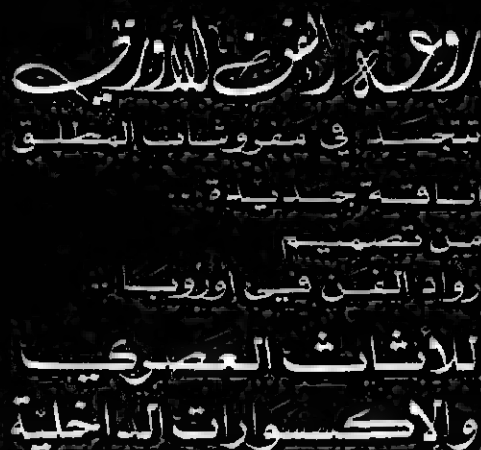 روعة الفن الأوروبي
تتجسد في مفروشات المطلق
اناقة جديدة ...
من تصميم
رواد الفن في أوروبا ..
للأثاث العصري
والاكسسوارات الداخلية